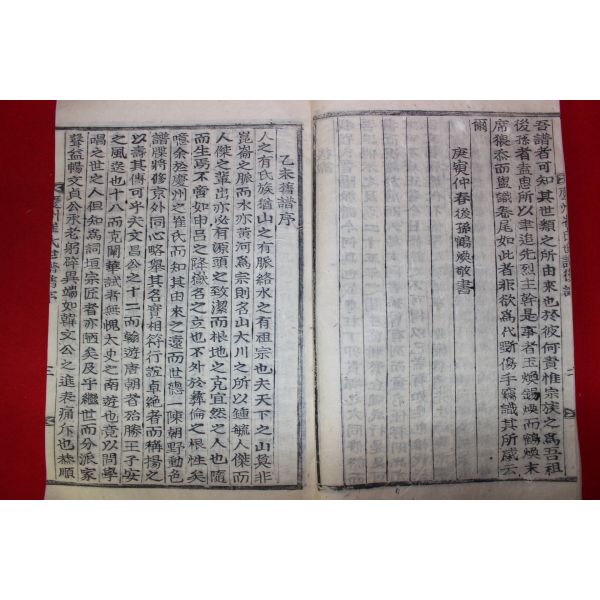 吾譜者可知其世類之所由來也於彼何貴惟宗族之爲吾祖
後孫者盍思所以聿追先烈主幹是事者玉煥錫煥而鶴煥末
席猥忝而與識卷尾如此者非欲爲代斲傷手竊識其所感云
爾
庚寅仲春後孫鶴煥敬書
乙未舊譜序
人之有氏族猶山之有脈絡水之有祖宗也夫天下之山莫非
崑崙之脈而水亦黃河爲宗則名山大川之所以鍾毓人傑而
人傑之輩出亦必有源頭之致潔而根地之克宜然之人也隨
而生焉不啻如申呂之降嶽名之立也不外於彝倫之根性矣
噫余於慶州之崔氏而知其由來之遠而世德 陳朝野動色
譜牒將修京外同心略舉其名實相符行誼卓絶者而稱揚之
以壽其傳可乎夫文昌公之十二而輸遊唐朝者殆勝王子安
之風送也十八而克闡華試者無愧太史之南遊也竟以閒寧
唱之世之人但知爲詞垣宗匠者亦陋矣及乎繼世而分派家
聲益暢文貞公永老躬辟異端如韓文公之進表痛斥也恭順
慶州崔氏世譜舊序